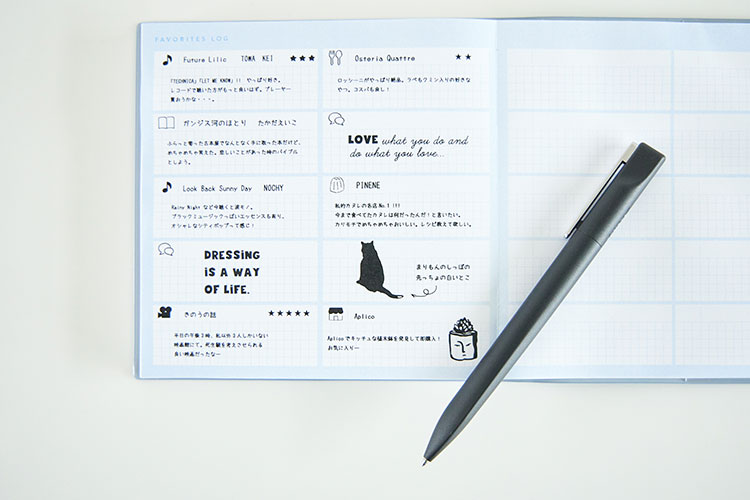 FAVORITES LOG
Future Lilic TOWA KEI ★★★
「TECHNICA」「LET ME KNOW」!! やっぱり好き。
レコードで聴いた方がもっと良いはず。プレーヤー
買おうかな・・・。
ガンジス河のほとり たかだえいこ
ふらっと寄った古本屋でなんとなく手に取った本だけど、
めちゃめちゃ笑えた。悲しいことがあった時のバイブル
としよう。
Look Back Sunny Day NOCHY
Rainy Night など今聴くと涙モノ。
ブラックミュージックっぽいエッセンスも有り、
オシャレなシティポップって感じ!
DRESSING
iS A WAY
OF LiFE.
きのうの話 ★★★★★
平日の午後3時、私以外3人しかいない
映画館にて。死生観を考えさせられる
良い映画だったなー
Osteria Quattro ★★
ロッシーニがやっぱり絶品。ラペもクミン入りの好きな
やつ。コスパも良し!
LOVE what you do and
do what you love...
PINENE
私的カヌレの名店 No.1 !!!
今まで食べてたカヌレは何だったんだ!と言いたい。
カリモチでめちゃめちゃおいしい。レシピ教えて欲しい。
まりもんのしっぽの
先っちょの白いとこ
Aplico
Aplico でキッチュな植木鉢を発見して即購入!
お気に入りー